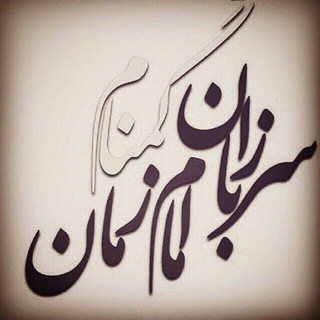 سربازان گمنام
امام زمان